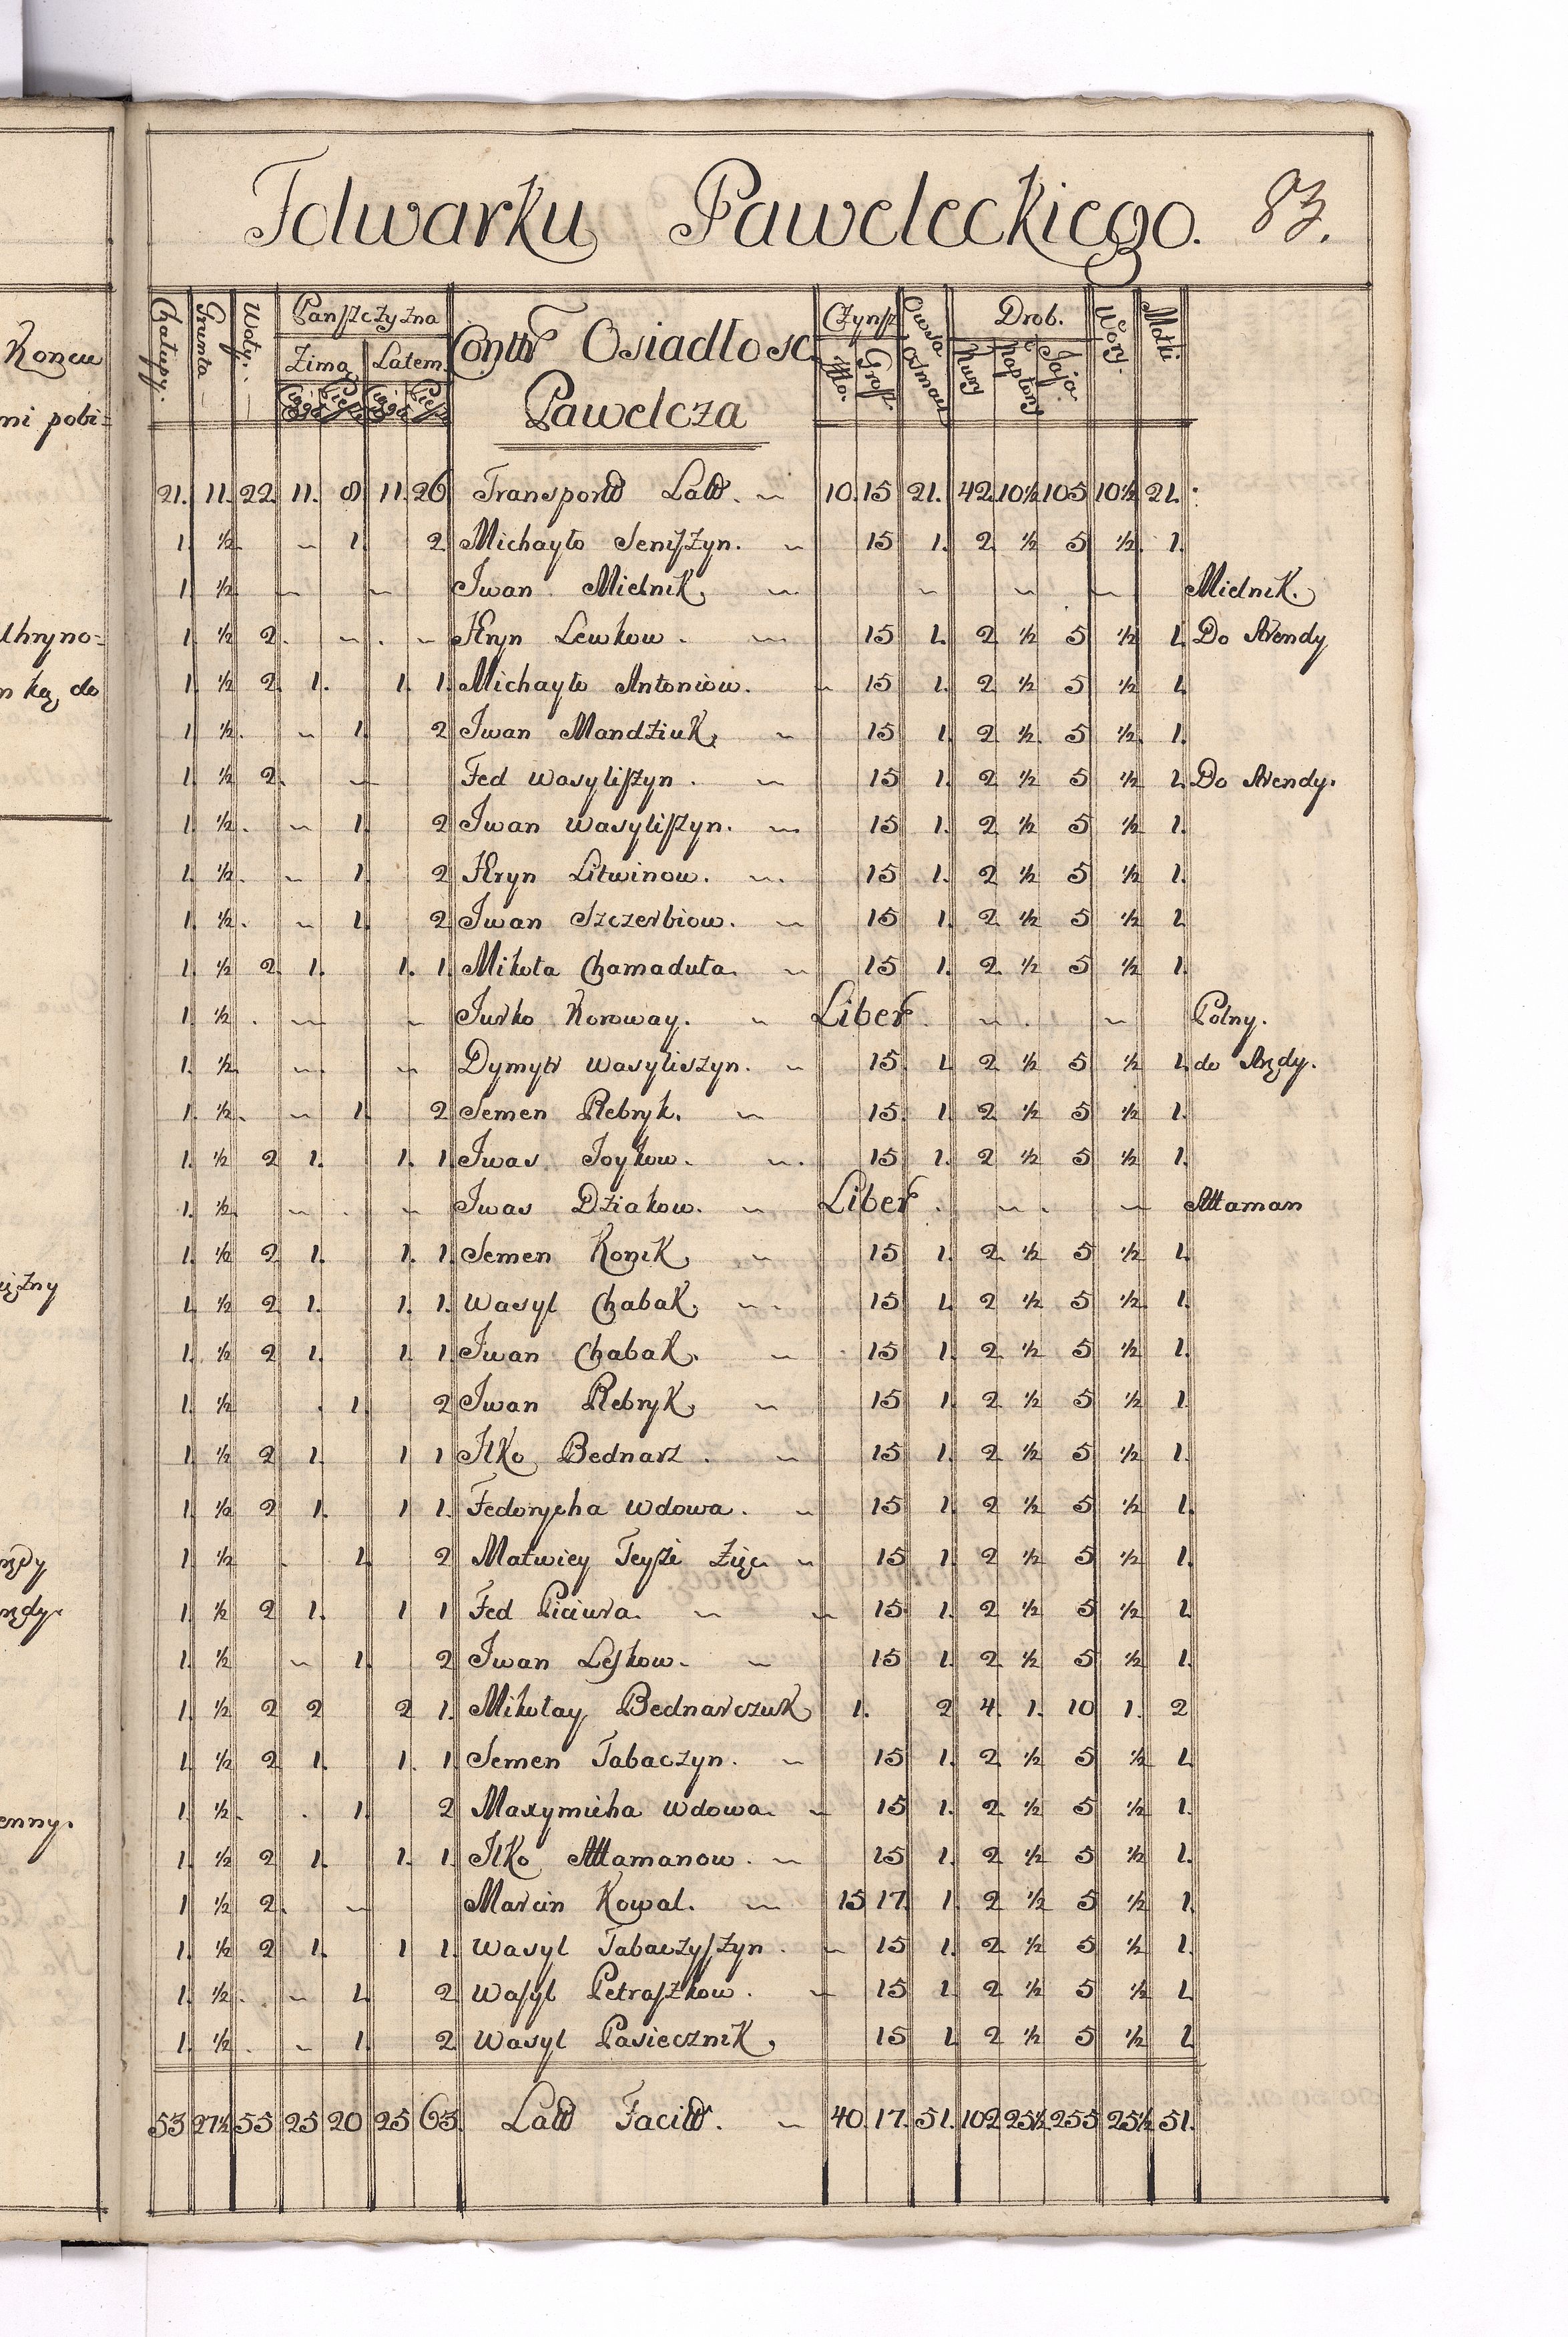 Folwarku Paweleckiego. 83.
Chałupy. Grunta Woły. Panszczyzna Contr Osiadłosc Czynsz Owsa Osmaci Drob. Wory. Motki
Zimą Latem. Pawelcza Zło. Grosz. Kury Kapłony Jaja
Ciągła Pie Ciągła Pie
21. 11. 22. 11. 8 11. 26 Transport Lat. 10. 15 21. 42. 10½ 105 10½ 21.
1. ½ 1. 2 Michayło Seniszyn. 15 1. 2 ½ 5 ½ 1.
1 ½ Iwan Mielnik Mielnik.
1. ½ 2. Hryn Lewkow. 15 1. 2 ½ 5 ½ 1. Do Arendy
1. ½ 2. 1. 1. 1. Michayło Antoniow. 15 1. 2 ½ 5 ½ 1.
1 ½ 1. 2 Iwan Mandziuk 15 1. 2 ½ 5 ½ 1.
1. ½ 2. Fed Wasyliszyn. 15 1. 2 ½ 5 ½ 1. Do Arendy.
1. ½. 1. 2 Iwan Wasyliszyn. 15 1. 2 ½ 5 ½ 1.
1. ½. 1. 2 Hryn Litwinow. 15 1. 2 ½ 5 ½ 1.
1. ½. 1. 2 Iwan Szczerbiow. 15 1. 2 ½ 5 ½ 1.
1. ½ 2. 1. 1. 1. Mikoła Chamaduła 15 1. 2 ½ 5 ½ 1.
1. ½ Jurko Koroway. Liber Polny.
1. ½ Dymytr Wasyliszyn. 15. 1. 2 ½ 5 ½ 1. do Arędy.
1. ½. 1. 2 Semen Rebryk. 15. 1. 2 ½ 5 ½ 1.
1. ½ 2 1. 1. 1. Iwas Joykow. 15 1. 2 ½ 5 ½ 1.
1. ½ Iwas Dziakow. Liber Attaman
1. ½ 2 1. 1. 1. Semen Konik 15 1. 2 ½ 5 ½ 1.
1. ½ 2 1. 1. 1. Wasyl Chabak 15 1. 2 ½ 5 ½ 1.
1. ½ 2 1. 1. 1. Iwan Chabak. 15 1. 2 ½ 5 ½ 1.
1. ½ 1. 2 Iwan Rebryk 15 1. 2 ½ 5 ½ 1.
1. ½ 2 1. 1 1 Ilko Bednarz. 15 1. 2 ½ 5 ½ 1.
1. ½ 2 1. 1 1. Fedorycha Wdowa. 15 1. 2 ½ 5 ½ 1.
1. ½ 1. 2 Matwiey Zięc 15 1. 2 ½ 5 ½ 1.
1. ½ 2 1. 1 1 Fed Piciura. 15 1. 2 ½ 5 ½ 1.
1. ½ 1. 2 Iwan Leskow. 15 1. 2 ½ 5 ½ 1.
1. ½ 2 2 2 1. Mikołay Bednarczuk 1. 2 4. 1. 10 1. 2
1. ½ 2 1. 1. 1. Semen Tabaczyn. 15 1. 2 ½ 5 ½ 1.
1. ½. 1. 2 Maxymicha Wdowa. 15 1. 2 ½ 5 ½ 1.
1. ½ 2 1. 1. 1. Ilko Attamanow. 15 1. 2 ½ 5 ½ 1.
1 ½ 2. Marcin Kowal. 15 17. 1. 2 ½ 5 ½ 1.
1. ½ 2 1. 1 1. Wasyl Tabaczyszyn. 15 1. 2 ½ 5 ½ 1.
1. ½. 1. 2 Wasyl Petraszkow. 15 1. 2 ½ 5 ½ 1.
1. ½. 1. 2 Wasyl Pasiecznik 15 1. 2 ½ 5 ½ 1.
53 27½ 55 25 20 25 63. Lat Facit. 40. 17. 51. 102 25½ 255 25½ 51.
Koncu
mi pobi=
Uhryno=
ką do
enny.